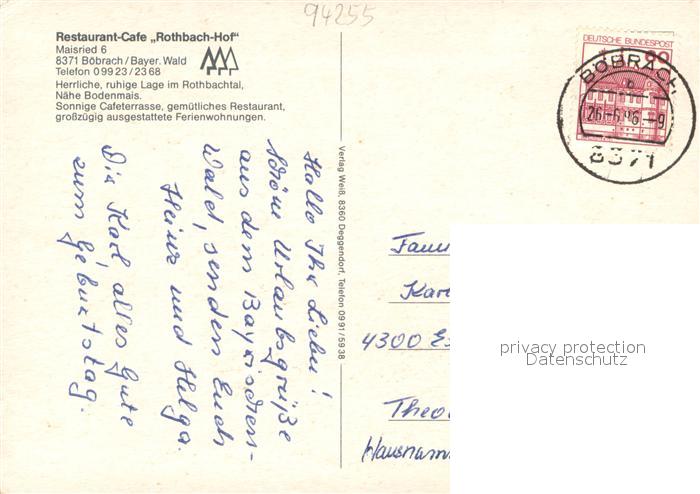 94255
Restaurant-Cafe „Rothbach-Hof"
Maisried 6
8371 Böbrach/Bayer. Wald
Telefon 09923/2368
Herrliche, ruhige Lage im Rothbachtal,
Nähe Bodenmais.
Sonnige Cafeterrasse, gemütliches Restaurant,
großzügig ausgestattete Ferienwohnungen.
Hallo Ihr Lieben!
Schöne Urlaubsgrüße
aus dem Bayrischen-
Wald, senden Euch
Heinz und Helga.
Dir Karl alles Gute
zum Geburtstag.
Verlag Weiß, 8360 Deggendorf, Telefon 0991/5938
DEUTSCHE BUNDESPOST
80
BÖBRACH
b
26.-6.86.-9
8371
Fam
Kar
4300 Es
Theo
Hausmann
privacy protection
Datenschutz